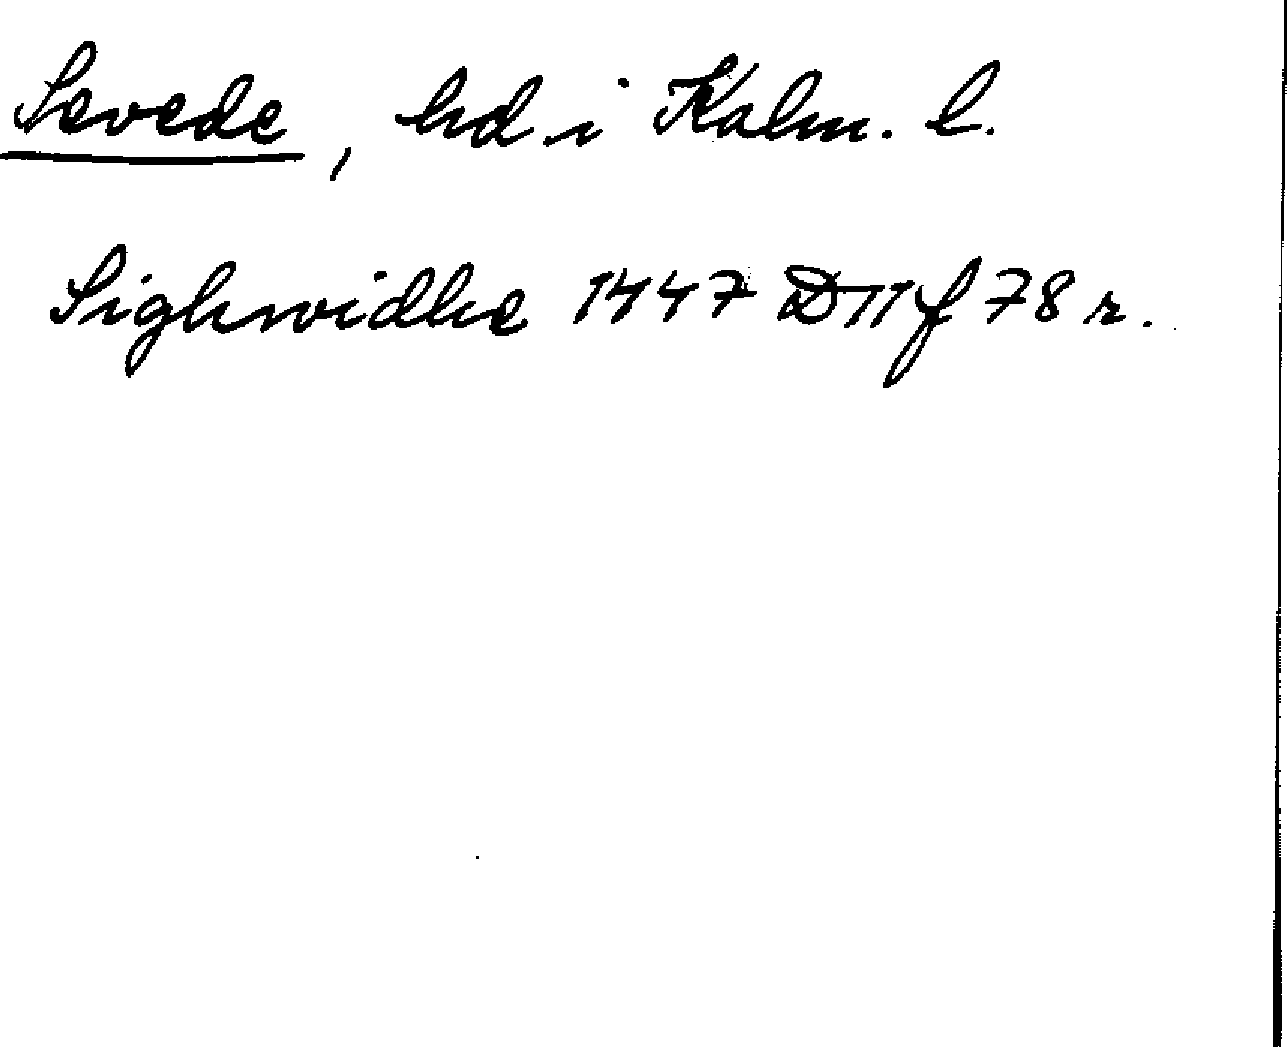 Sevede, hd i Kalm. l.
Sighwidhe 1447 D11 f 78 r.